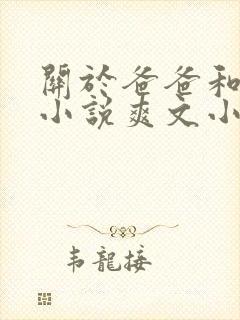 關於爸爸和
小說爽文小
韦龍接